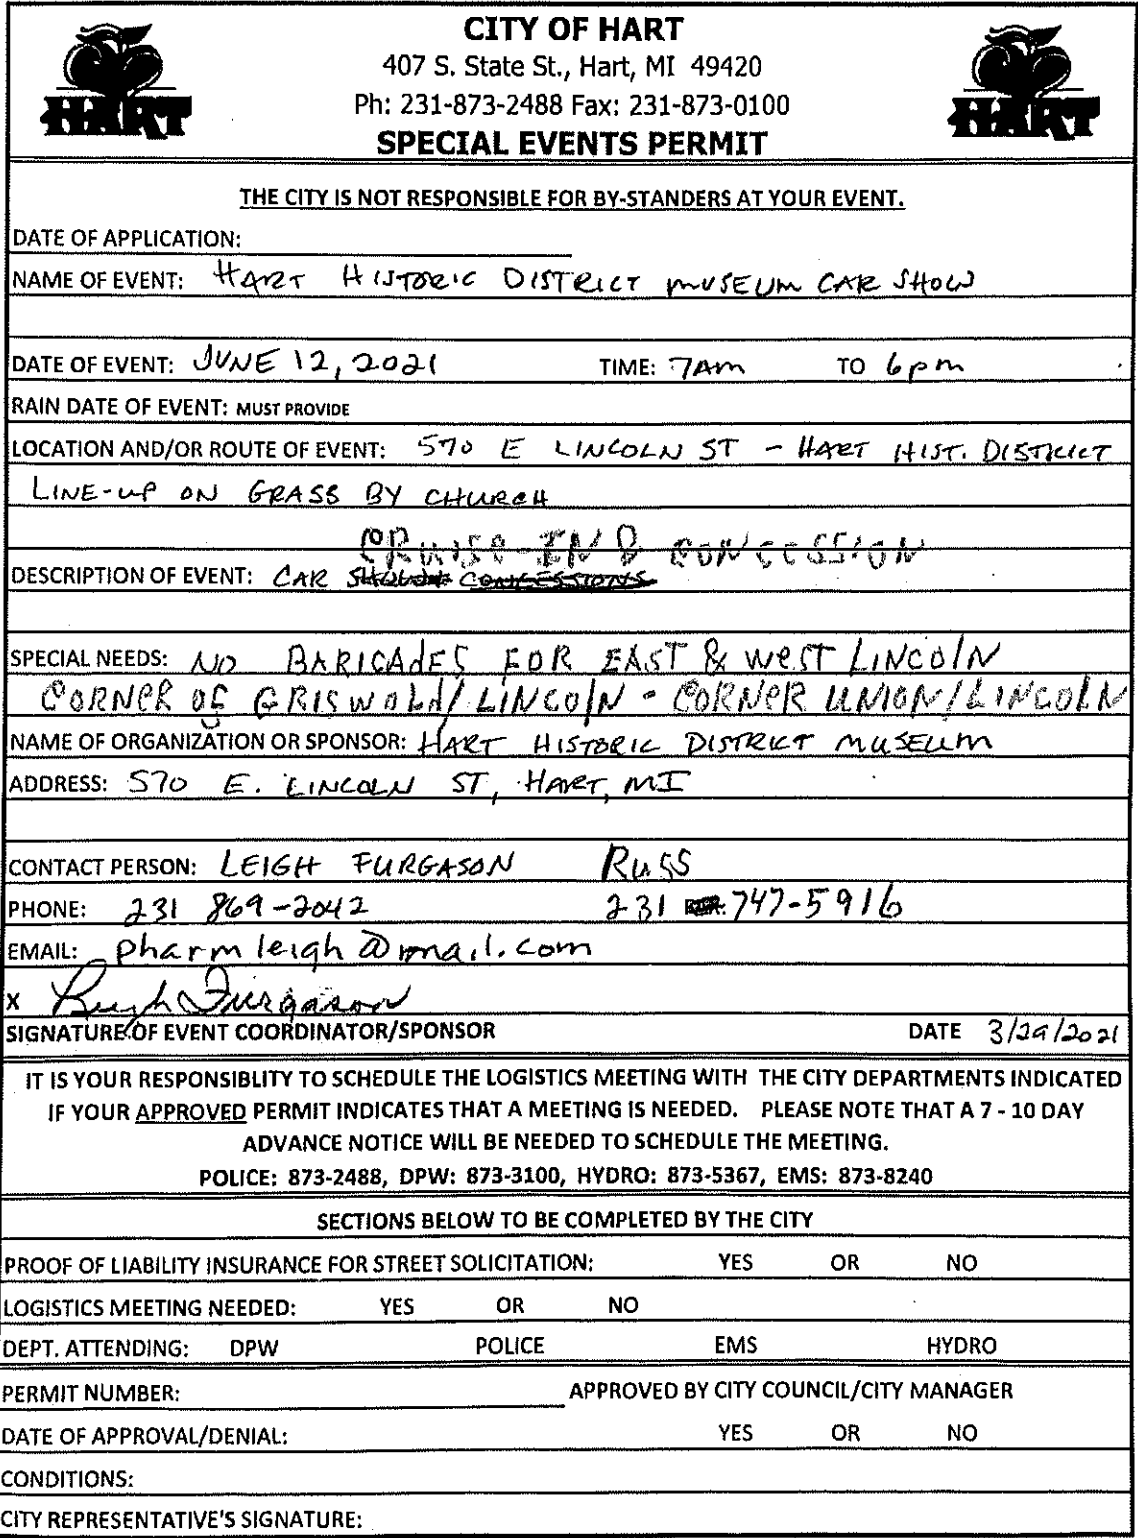 CITY OF HART
407 S. State St., Hart, MI 49420
Ph: 231-873-2488 Fax: 231-873-0100
SPECIAL EVENTS PERMIT
HART
HART
THE CITY IS NOT RESPONSIBLE FOR BY-STANDERS AT YOUR EVENT.
DATE OF APPLICATION:
NAME OF EVENT: HART HISTORIC DISTRICT MUSEUM CAR SHOW
DATE OF EVENT: JUNE 12, 2021 TIME: 7AM TO 6pm
RAIN DATE OF EVENT: MUST PROVIDE
LOCATION AND/OR ROUTE OF EVENT: 570 E LINCOLN ST - HART HIST. DISTRICT
LINE-UP ON GRASS BY CHURCH
CRUISE-IN & CONCESSION
DESCRIPTION OF EVENT: CAR SHOW CONCESSIONS
SPECIAL NEEDS: NO BARICADES FOR EAST & WEST LINCOLN
CORNER OF GRISWOLD/LINCOLN - CORNER UNION/LINCOLN
NAME OF ORGANIZATION OR SPONSOR: HART HISTORIC DISTRICT MUSEUM
ADDRESS: 570 E. LINCOLN ST, HART, MI
CONTACT PERSON: LEIGH FURGASON RUSS
PHONE: 231 869-2042 231 747-5916
EMAIL: pharmleigh@mail.com
X Leigh Furgason
SIGNATURE OF EVENT COORDINATOR/SPONSOR DATE 3/29/2021
IT IS YOUR RESPONSIBLITY TO SCHEDULE THE LOGISTICS MEETING WITH THE CITY DEPARTMENTS INDICATED
IF YOUR APPROVED PERMIT INDICATES THAT A MEETING IS NEEDED. PLEASE NOTE THAT A 7 - 10 DAY
ADVANCE NOTICE WILL BE NEEDED TO SCHEDULE THE MEETING.
POLICE: 873-2488, DPW: 873-3100, HYDRO: 873-5367, EMS: 873-8240
SECTIONS BELOW TO BE COMPLETED BY THE CITY
PROOF OF LIABILITY INSURANCE FOR STREET SOLICITATION: YES OR NO
LOGISTICS MEETING NEEDED: YES OR NO
DEPT. ATTENDING: DPW POLICE EMS HYDRO
PERMIT NUMBER: APPROVED BY CITY COUNCIL/CITY MANAGER
DATE OF APPROVAL/DENIAL: YES OR NO
CONDITIONS:
CITY REPRESENTATIVE'S SIGNATURE: